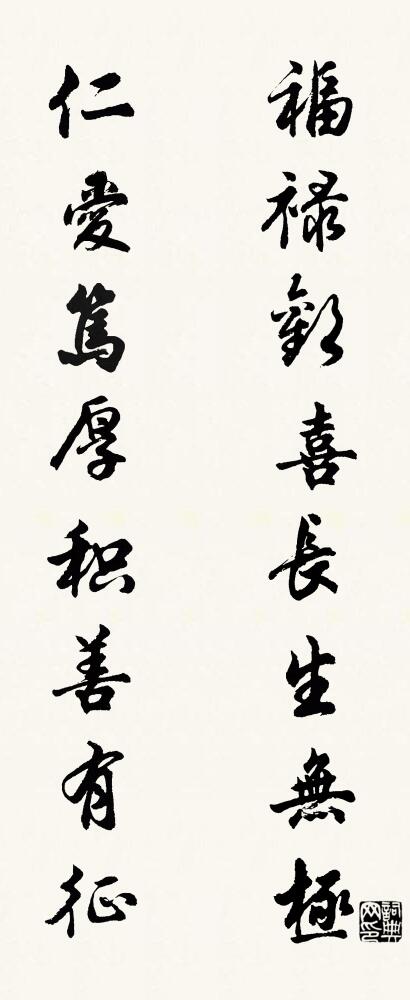 福禄歡喜長生無極
仁愛篤厚积善有征
詞典网印